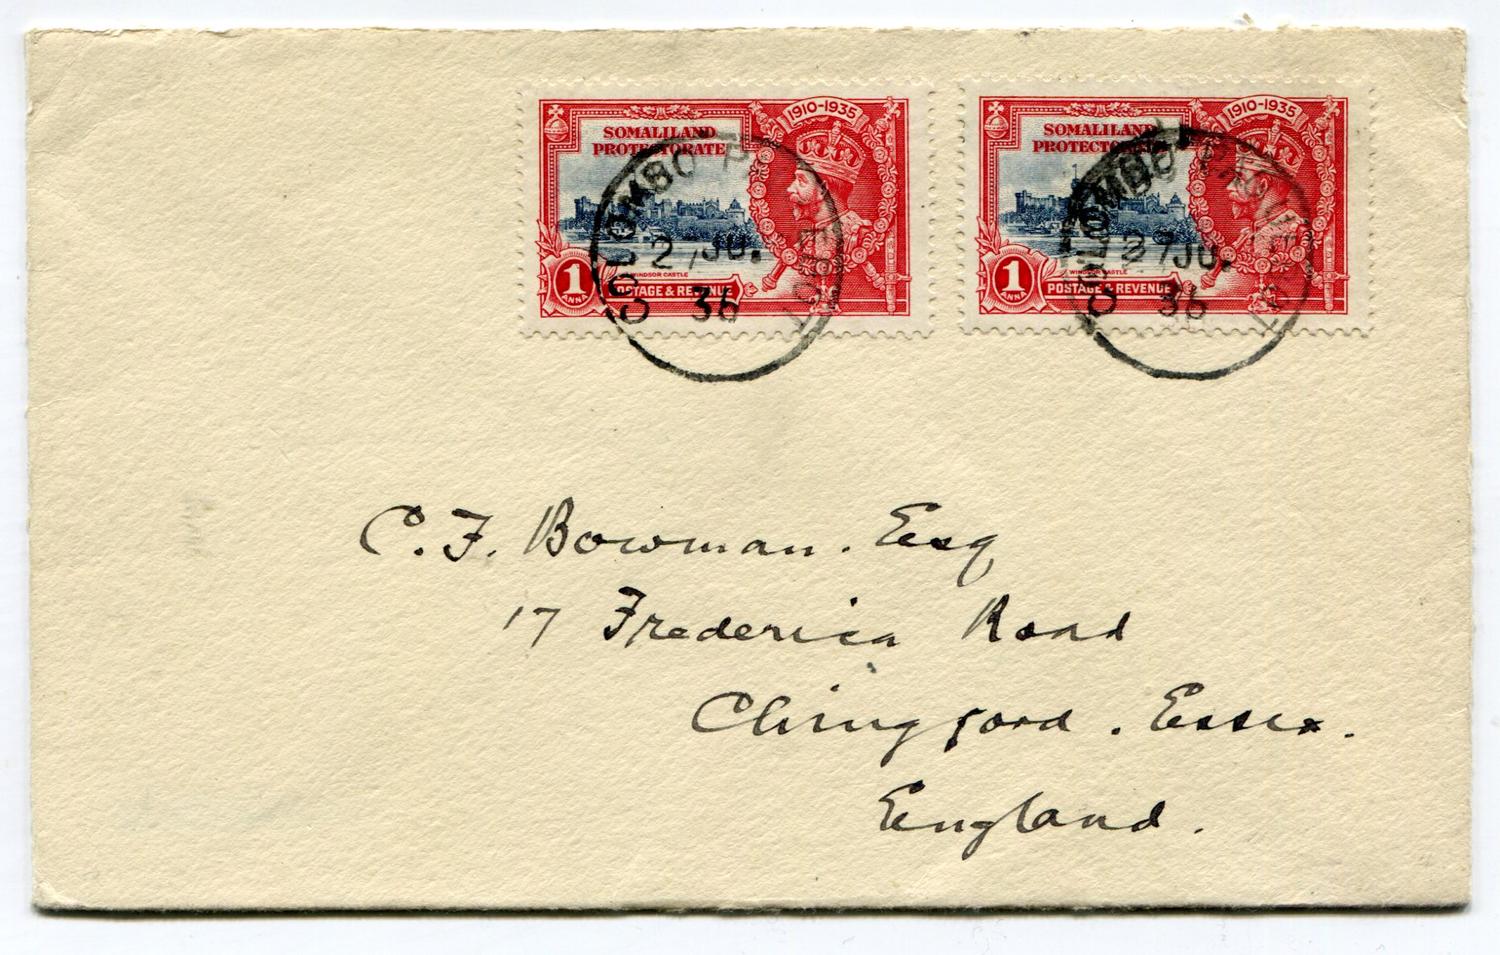 1910-1935
SOMALILAND
PROTECTORATE
WINDSOR CASTLE
1
ANNA
POSTAGE & REVENUE
COLOMBO
27 JU.
36
1910-1935
SOMALILAND
PROTECTORATE
WINDSOR CASTLE
1
ANNA
POSTAGE & REVENUE
COLOMBO PAQUEBOT
27 JU.
36
C. F. Bowman. Esq
17 Frederica Road
Chingford. Essex.
England.